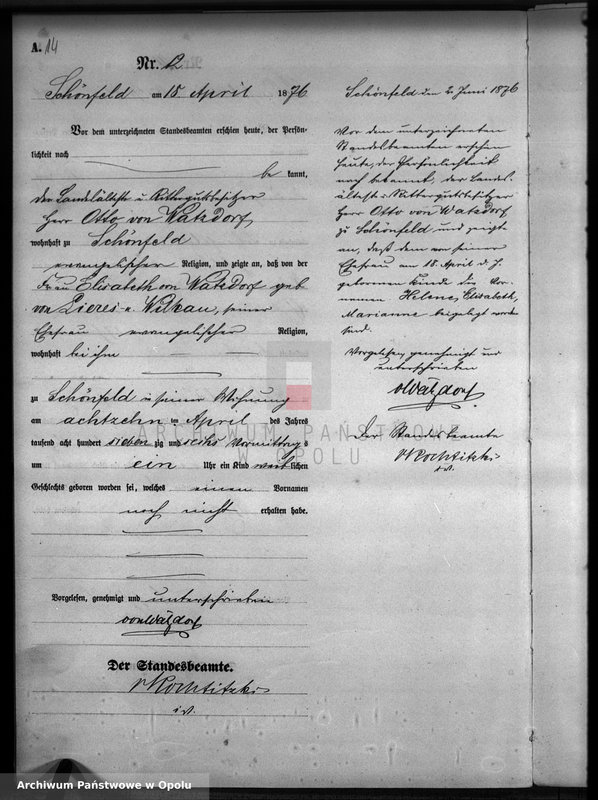 A. 14
Nr. 12
Schönfeld am 18 April 1876
Vor dem unterzeichneten Standesbeamten erschien heute, der Persön-
lichkeit nach
be kannt,
der Landesälteste u Rittergutsbesitzer
Herr Otto von Watzdorf,
wohnhaft zu Schönfeld
evangelischer Religion, und zeigte an, daß von der
Frau Elisabeth von Watzdorf geb
von Lieres u. Wilkau, seiner
Ehefrau evangelischer Religion,
wohnhaft bei ihm
zu Schönfeld in seiner Wohnung
am achtzehn ten April des Jahres
tausend acht hundert sieben zig und sechs Vormittags
um ein Uhr ein Kind weib lichen
Geschlechts geboren worden sei, welches einen Vornamen
noch nicht erhalten habe.
Vorgelesen, genehmigt und unterschrieben
von Watzdorf
Der Standesbeamte.
v Kochtitzki
i.V.
Schönfeld den 2. Juni 1876
Vor dem unterzeichneten
Standesbeamten erschien
heute, der Persönlichkeit
nach bekannt, der Landes-
älteste u Rittergutsbesitzer
Herr Otto von Watzdorf
zu Schönfeld und zeigte
an, daß dem von seiner
Ehefrau am 18. April d. J.
geborenen Kinde die Vor-
namen Helene, Elisabeth,
Marianne beigelegt worden
sind.
Vorgelesen, genehmigt und
unterschrieben
v Watzdorf
Der Standesbeamte
v Kochtitzki
i.V.
ARCHIWUM PAŃSTWOWE
W OPOLU
Archiwum Państwowe w Opolu